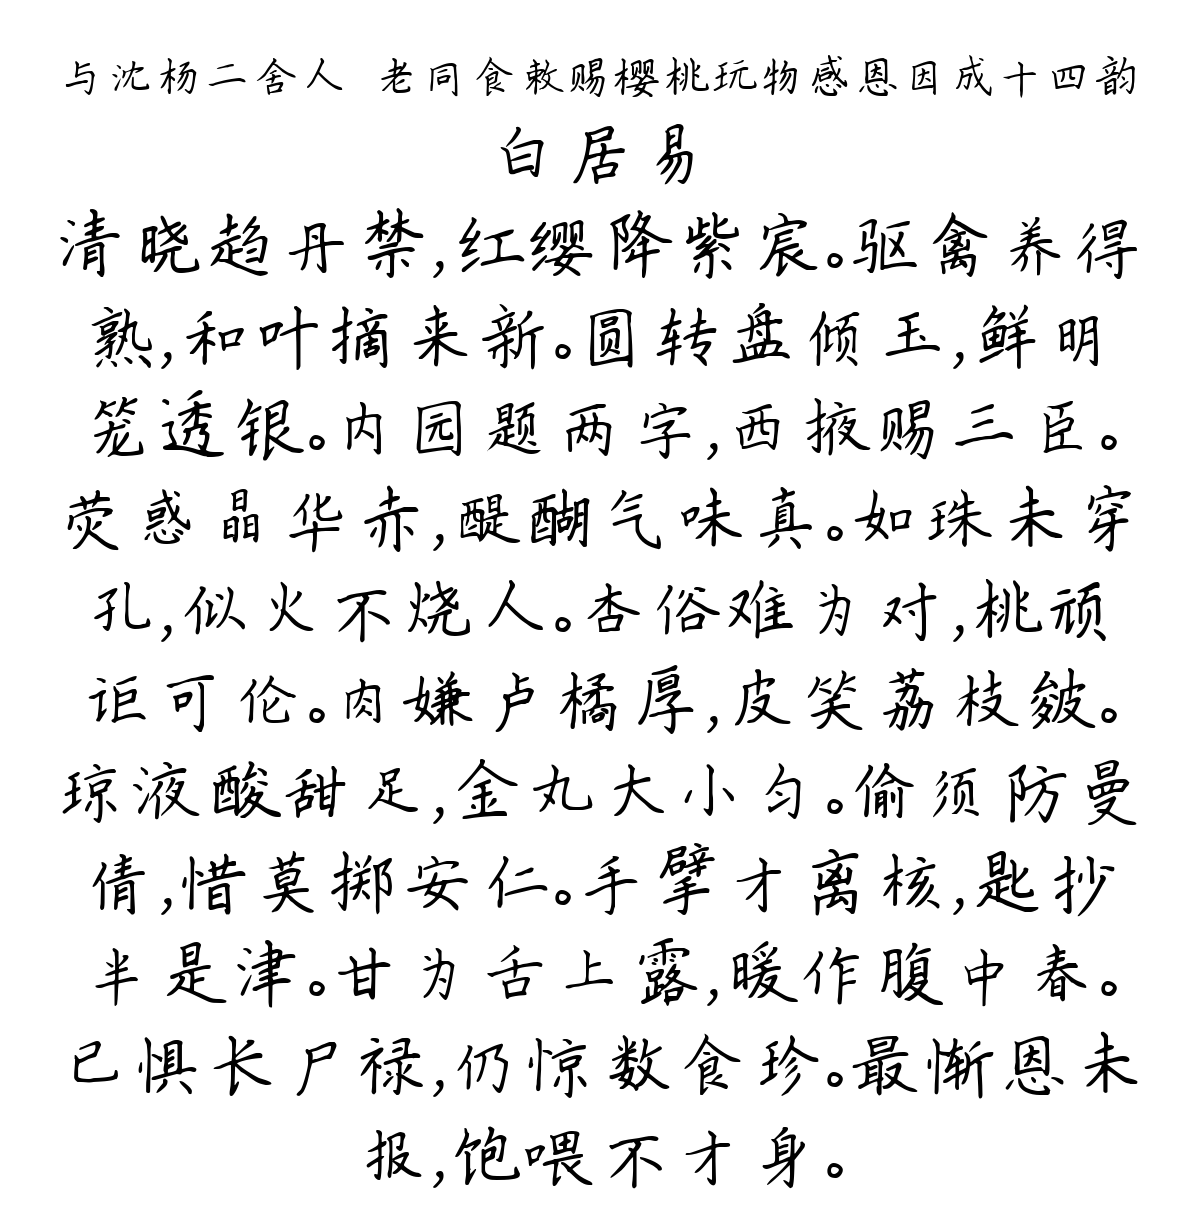 与沈杨二舍人 老同食敕赐樱桃玩物感恩因成十四韵
白居易
清晓趋丹禁,红缨降紫宸。驱禽养得
熟,和叶摘来新。圆转盘倾玉,鲜明
笼透银。内园题两字,西掖赐三臣。
荧惑晶华赤,醍醐气味真。如珠未穿
孔,似火不烧人。杏俗难为对,桃顽
讵可伦。肉嫌卢橘厚,皮笑荔枝皴。
琼液酸甜足,金丸大小匀。偷须防曼
倩,惜莫掷安仁。手擘才离核,匙抄
半是津。甘为舌上露,暖作腹中春。
已惧长尸禄,仍惊数食珍。最惭恩未
报,饱喂不才身。